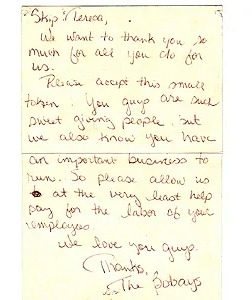 Skip, Teresa,
We want to thank you so
much for all you do for
us.
Please accept this small
token. You guys are such
sweet giving people but
we also know you have
an important business to
run. So please allow us
to at the very least help
pay for the labor of your
employees
We love you guys.
Thanks,
The Bobays